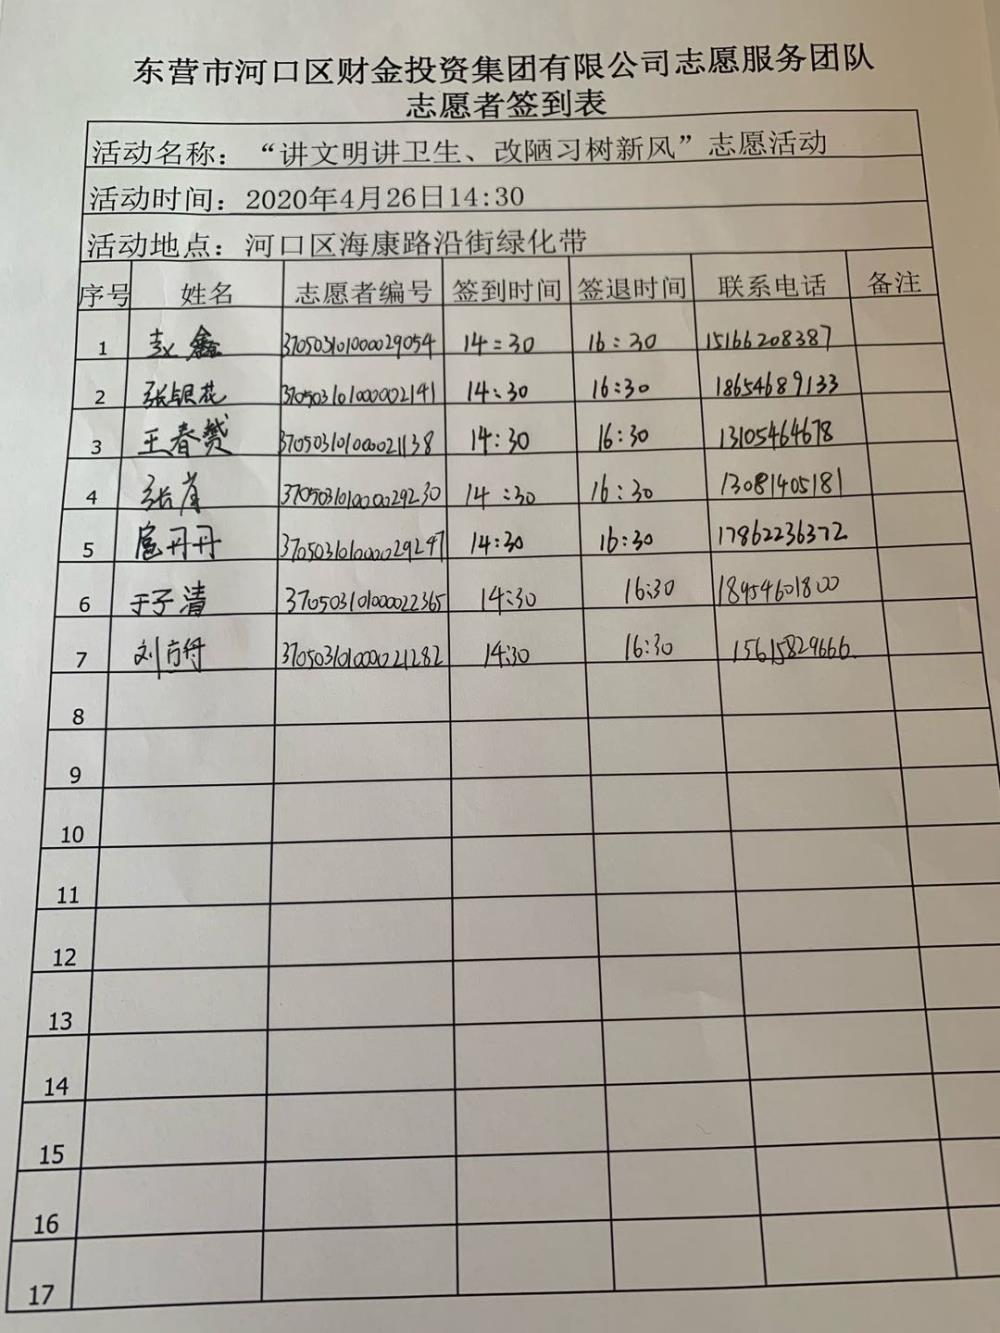 东营市河口区财金投资集团有限公司志愿服务团队
志愿者签到表
活动名称：“讲文明讲卫生、改陋习树新风”志愿活动
活动时间：2020年4月26日14:30
活动地点：河口区海康路沿街绿化带
序号 姓名 志愿者编号 签到时间 签退时间 联系电话 备注
1 赵鑫 370503101000029054 14:30 16:30 15166208387
2 张银花 370503101000002191 14:30 16:30 18654689133
3 王春赞 370503101000021138 14:30 16:30 13105464678
4 370503101000029230 14:30 16:30 13081405181
5 扈丹丹 370503101000029297 14:30 16:30 17862236372
6 于子清 370503101000022365 14:30 16:30 18954601800
7 刘 370503101000021282 14:30 16:30 15615829666
8
9
10
11
12
13
14
15
16
17